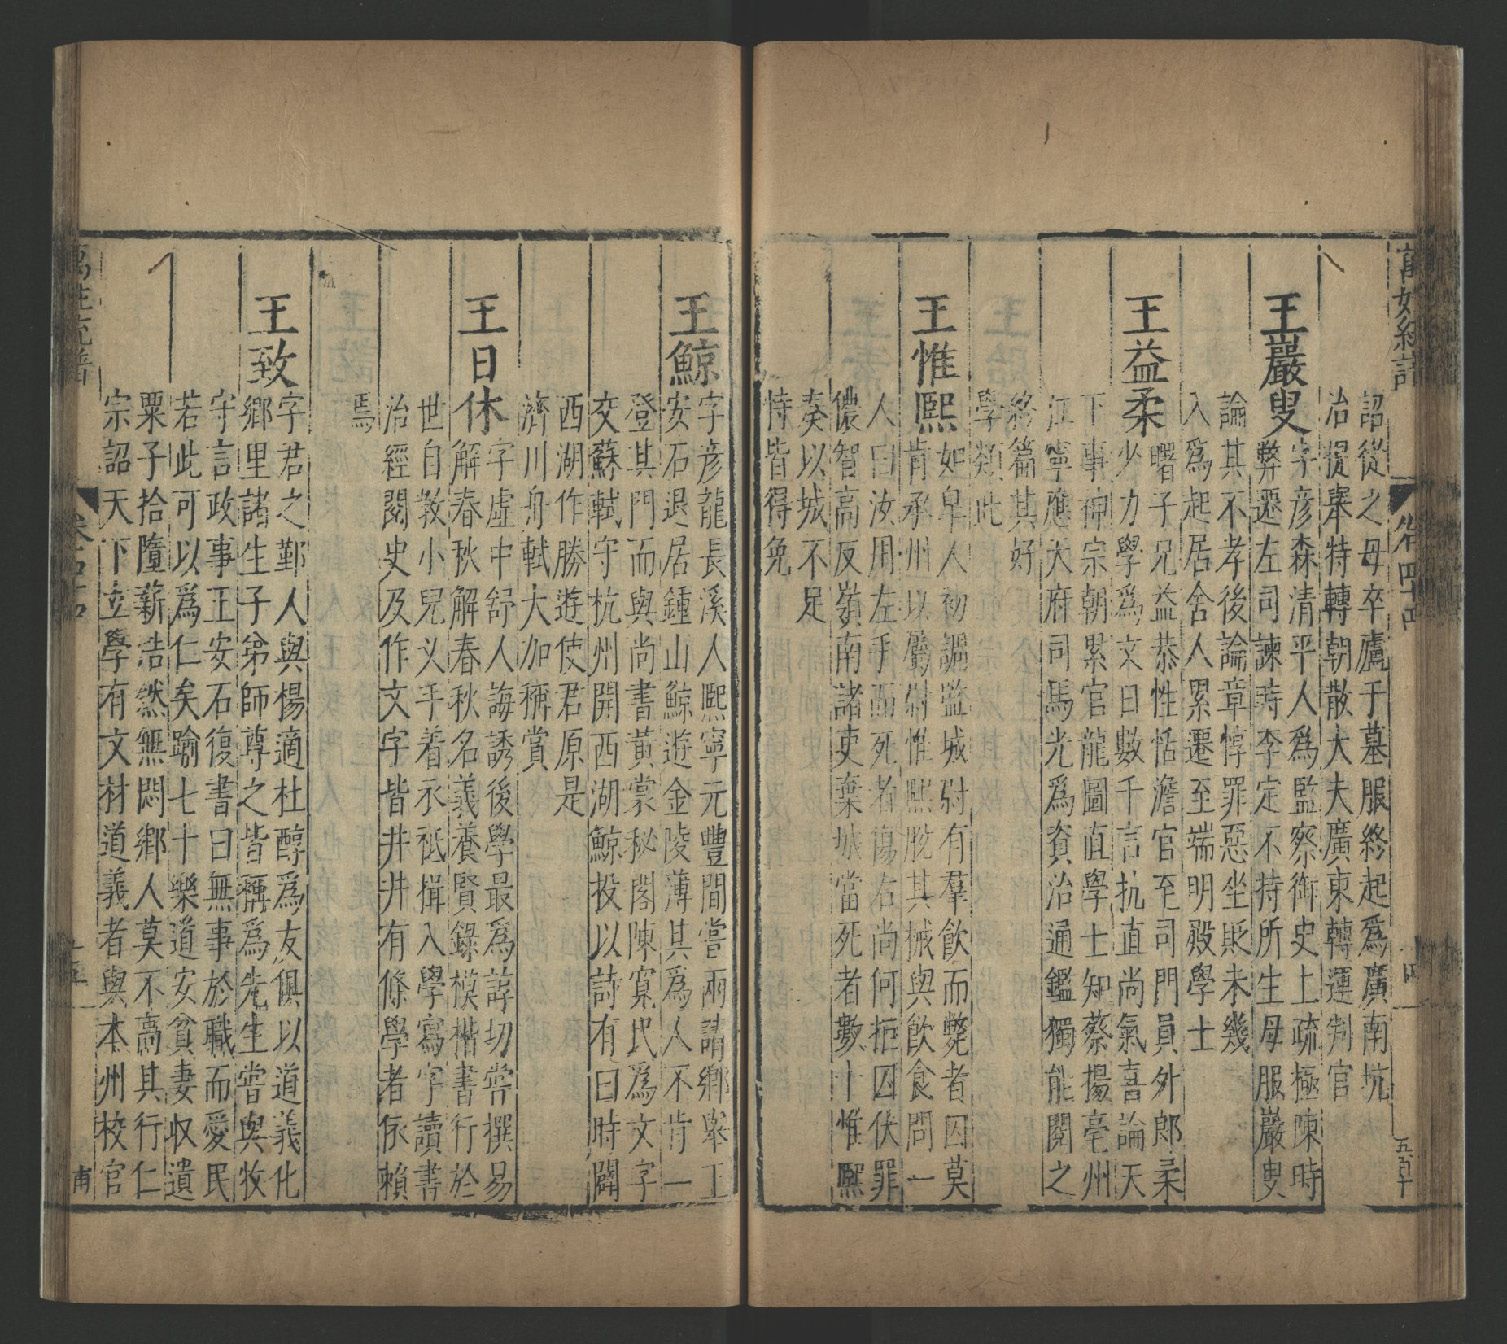 萬姓統譜
卷四十四
十四
五百十
詔從之母卒廬于墓服終起爲廣南坑
冶提舉特轉朝散大夫廣東轉運判官
王巖叟字彥森清平人爲監察衘史上疏極陳時
弊遷左司諫時李定不持所生母服巖叟
論其不孝後論章惇罪惡坐貶未幾
入爲起居舍人累遷至端明殿學士
王益柔曙子兄益恭性恬澹官至司門員外郎柔
少力學爲文日數千言抗直尚氣喜論天
下事神宗朝累官龍圖直學士知蔡揚亳州
江寧應天府司馬光爲資治通鑑獨能閱之
終篇其好
學類此
王惟熙如皐人初調監城尉有羣飲而斃者囚莫
肯承州以屬尉惟熙脫其械與飲食問一
人曰汝用左手而死者傷右尚何拒囚伏罪
儂智高反嶺南諸吏棄城當死者數十惟熙
奏以城不足
恃皆得免
王鯨字彥龍長溪人熙寧元豐間嘗兩請鄉舉王
安石退居鍾山鯨遊金陵薄其爲人不肯一
登其門而與尚書黃裳秘閣陳寔民爲文字
交蘇軾守杭州開西湖鯨投以詩有曰時闢
西湖作勝遊使君原是
濟川舟軾大加稱賞
王日休字虛中舒人誨誘後學最爲諄切嘗撰易
解春秋解春秋名義養賢錄模楷書行於
世自教小兒乂手着衣祗揖入學寫字讀書
治經閱史及作文字皆井井有條學者依賴
焉
王致字君之鄞人與楊適杜醇爲友俱以道義化
鄉里諸生子弟師尊之皆稱爲先生嘗與牧
守言政事王安石復書曰無事於職而愛民
若此可以爲仁矣踰七十樂道安貧妻収遺
粟子拾墮薪浩然無悶鄉人莫不高其行仁
宗詔天下立學有文材道義者與本州校官
萬姓統譜
卷四十四
十五
甫